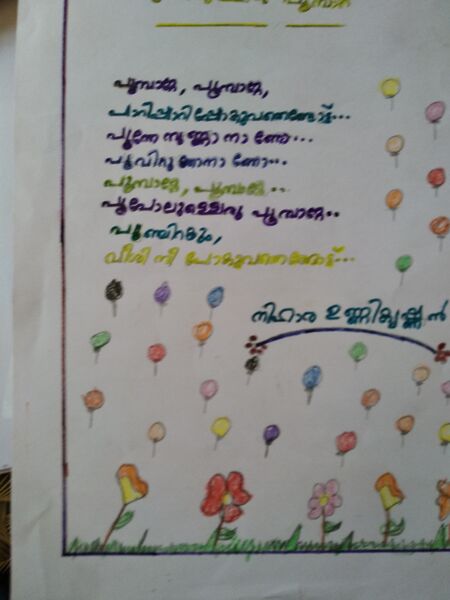 പൂമ്പാറ്റേ, പൂമ്പാറ്റേ,
പാറിപ്പാറിപ്പോകുവതെങ്ങോട്ട്...
പൂന്തേനുണ്ണാനാണോ...
പൂവിനുഞ്ഞാനാണോ...
പൂമ്പാറ്റേ, പൂമ്പാറ്റേ...
പൂപോലുള്ളൊരു പൂമ്പാറ്റേ..
പൂഞ്ചിറകും,
വീശി നീ പോകുവതെങ്ങോട്ട്...
നിഹാര ഉണ്ണികൃഷ്ണൻ